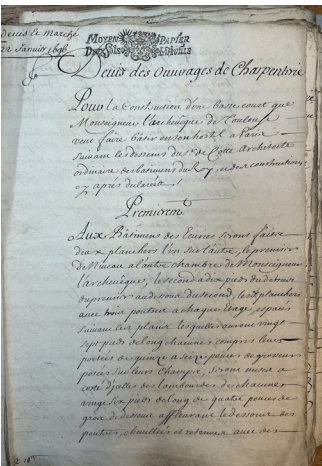 Devis et Marché
22 Janvier 1696
MOYEN PAPIER
DEUX SOLS LA FEUILLE
Devis des Ouvrages de Charpenterie
Pour la Construction d'une basse court que
Monseigneur l'archeuêque de Toulouse
veut faire bâtir en son hostel a Paris
suiuant les desseins du Sr. de Cotte Architecte
ordinaire des bastimens du Roy, et de sa construction
cy apres declarée
Premierement
Aux Bâtimens des Ecuries seront faits
deux planchers l'un sur l'autre, le premier
de Niueau a l'autre chambre de Monseigneur
l'archeuêque, le second a dix pieds du dessus
du premier au dessous du second, lesd. planchers
auec trois poutres a chaque étage, espacés
suiuant les plans lesquelles auront vingt
sept pieds de long chacunes compris leurs
portées de quinze a seize pouces de grosseur
posées sur leurs champs, seront mises a
costé d'jcelles des lambourdes de chacunes
vingt six pieds de long de quatre pouces de
gros de dessous affleurant le dessous des
poutres, cheuillées et retenues auec des